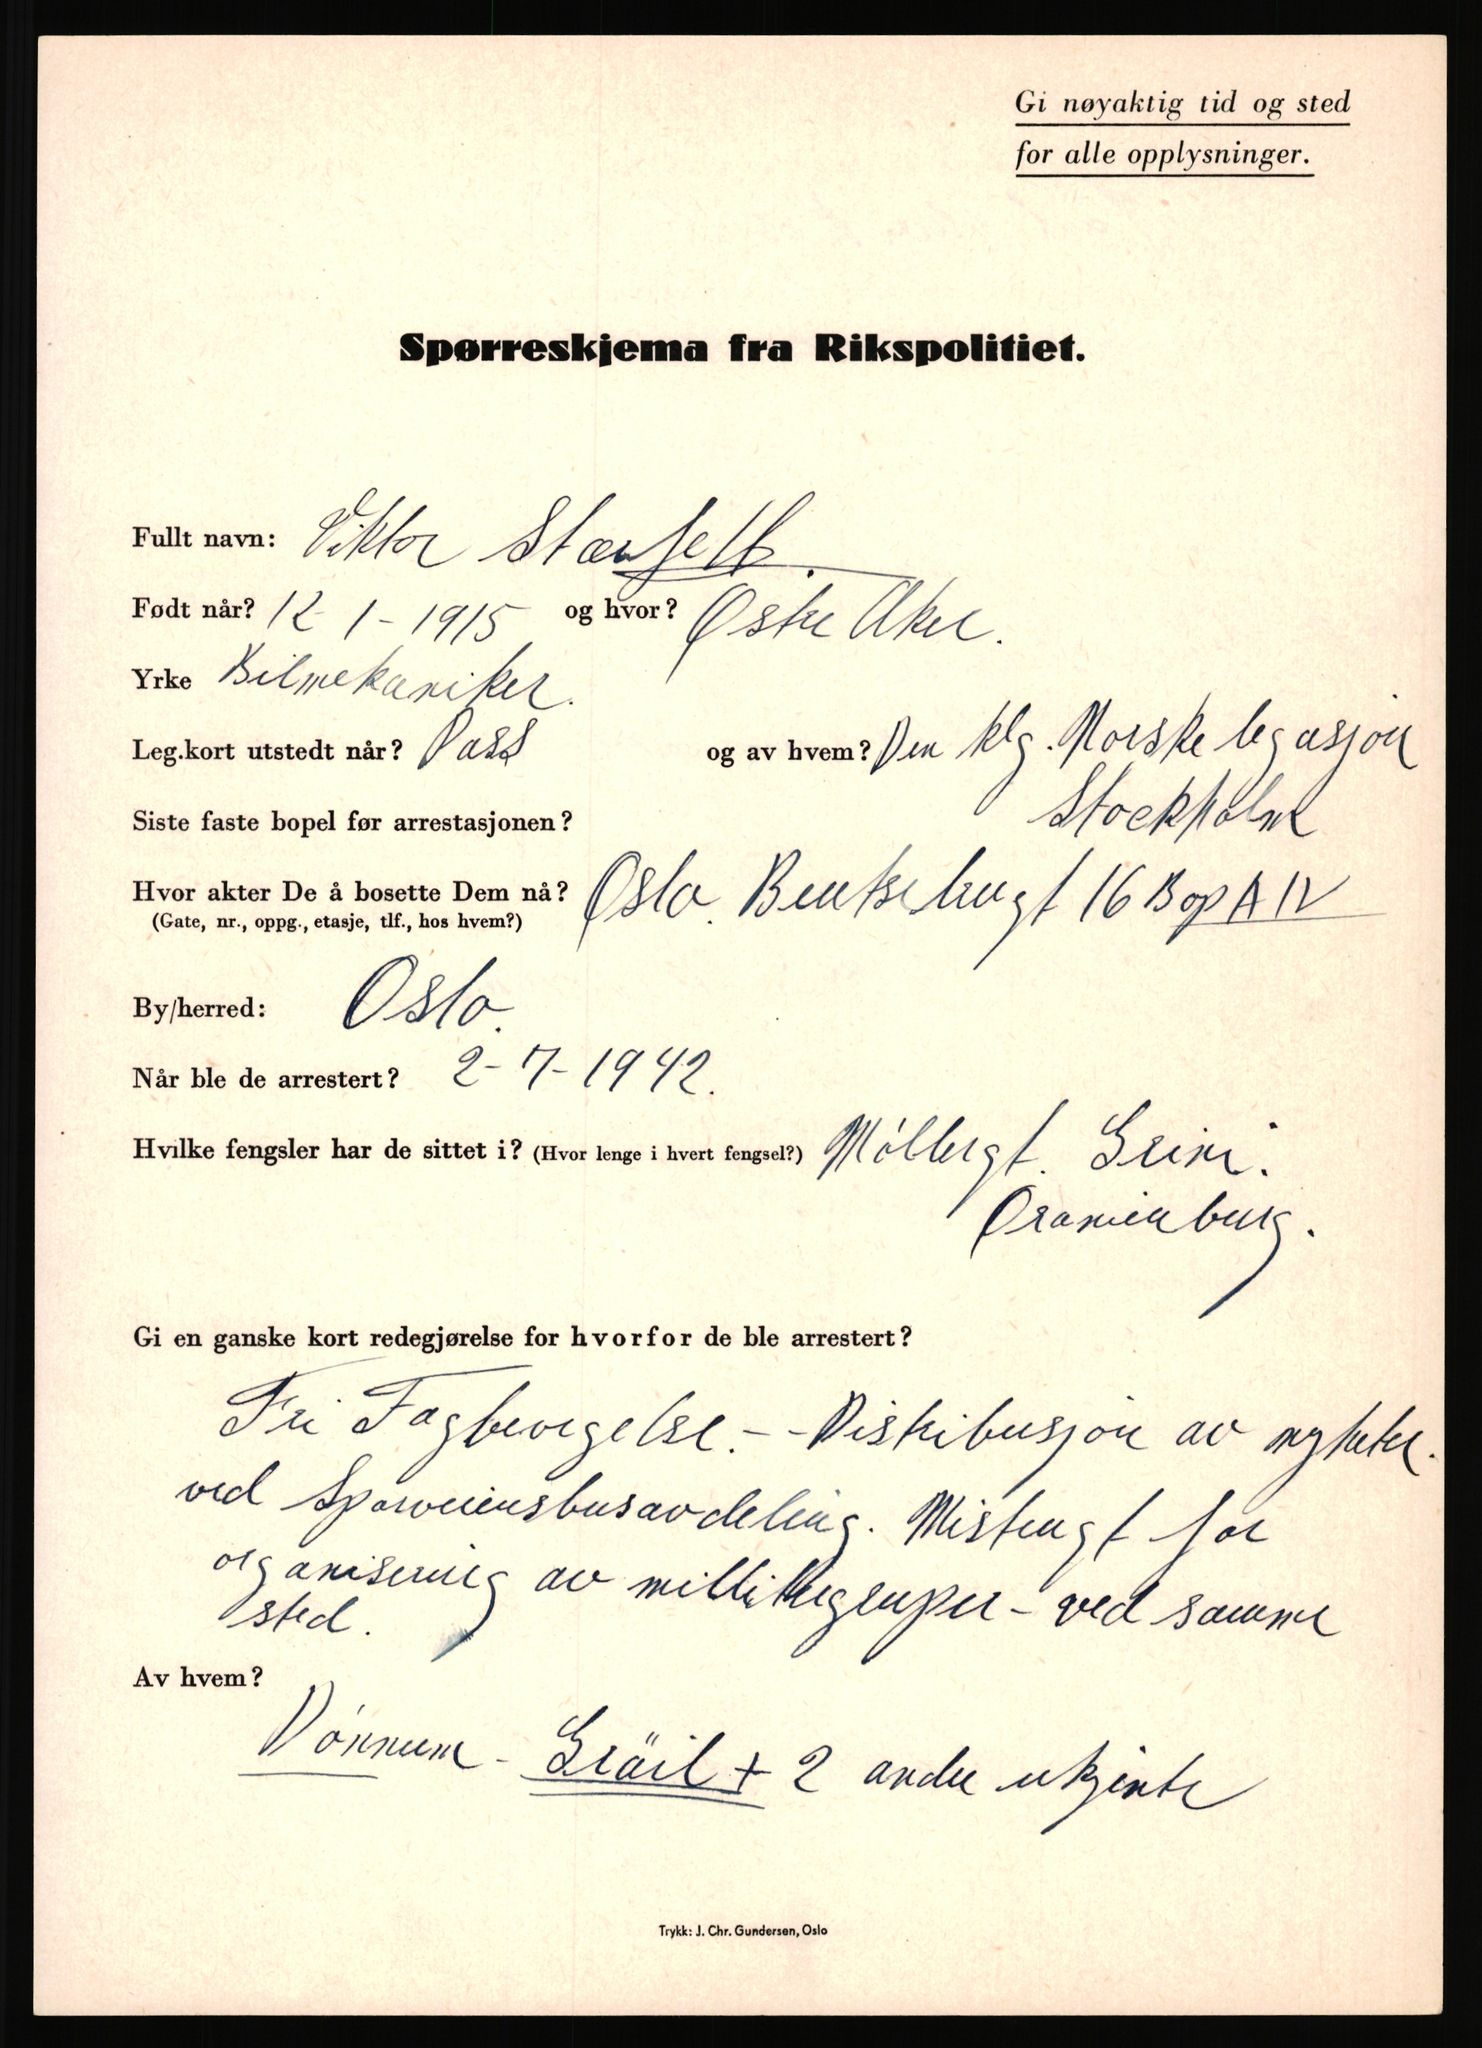 Gi nøyaktig tid og sted
for alle opplysninger.
Spørreskjema fra Rikspolitiet.
Fullt navn: Viktor
Født når? 12-1-1915 og hvor? Østre Aker.
Yrke Bilmekaniker.
Leg.kort utstedt når? Pass og av hvem? Den klg. Norske legasjon
Siste faste bopel før arrestasjonen? Stockholm
Hvor akter De å bosette Dem nå? Oslo. Bentsebrugt 16 B op A IV
(Gate, nr., oppg., etasje, tlf., hos hvem?)
By/herred: Oslo.
Når ble de arrestert? 2-7-1942.
Hvilke fengsler har de sittet i? (Hvor lenge i hvert fengsel?) Møllergt. Grini.
Oranienburg.
Gi en ganske kort redegjørelse for hvorfor de ble arrestert?
Fri Fagbevegelse. - - Distribusjon av nyheter.
ved Sporveiensbusavdeling. Mistengt for
organisering av - ved samme
sted.
Av hvem?
Dønnum - + 2 andre ukjente
Trykk: J. Chr. Gundersen, Oslo